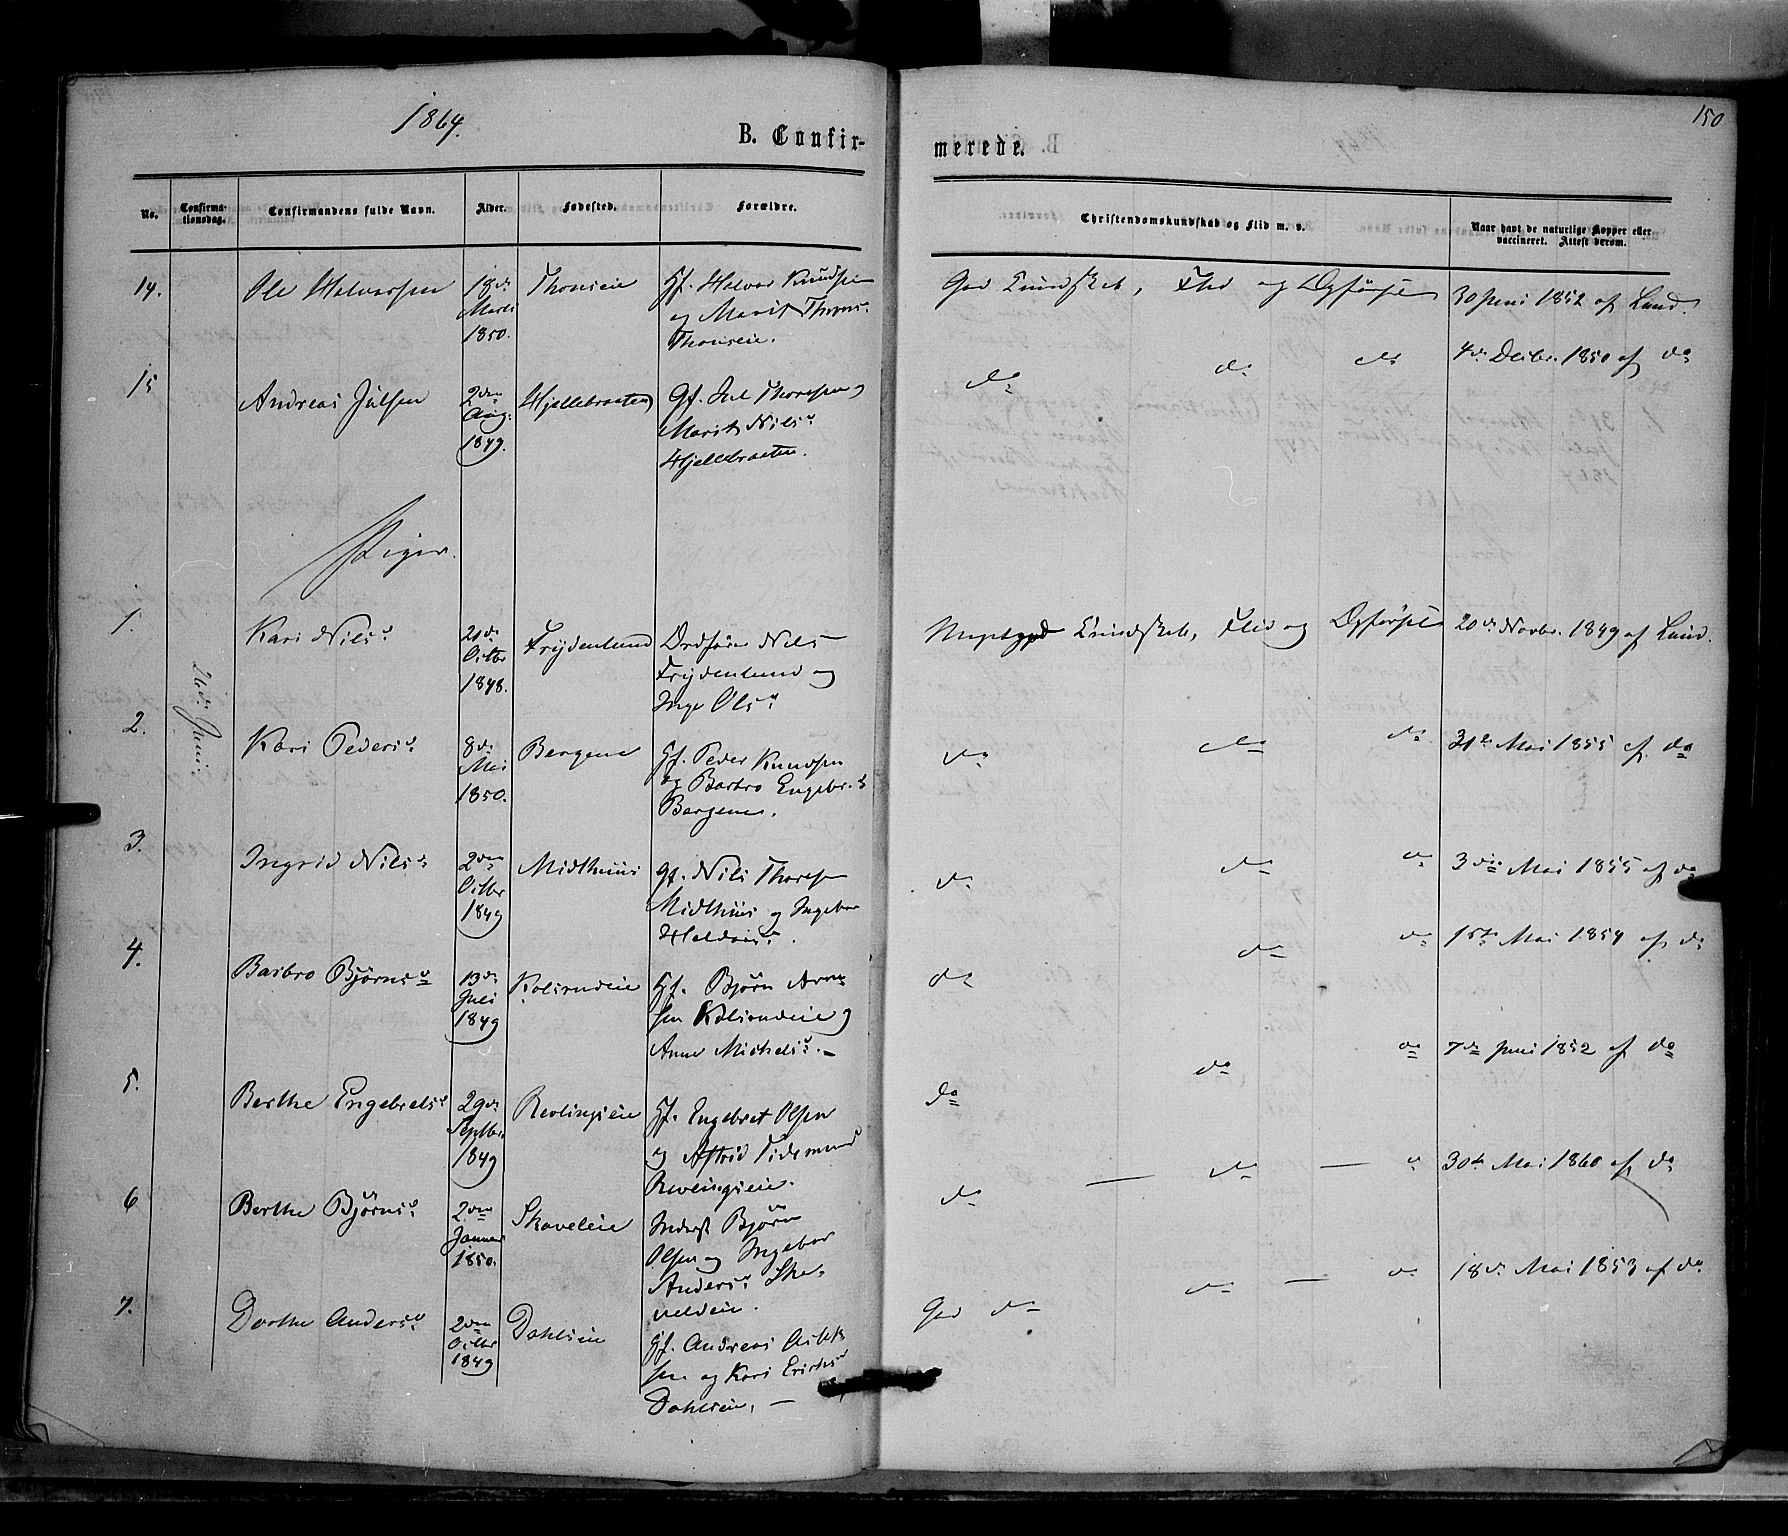 1864.
150
B. Confir-
merede.
No.
Confirma-
tionsdag.
Confirmandens fulde Navn.
Alder.
Fødested.
Forældre.
Christendomskundskab og Flid m. v.
Naar havt de naturlige Kopper eller
vaccineret. Attest derom.
14.
Ole Halvorsen
18de
Marts
1850.
Thonseie
Gf. Halvor Knudsen
og Marit Thores.
Thonseie.
God Kundskab, Flid og Opførsel
30 Juni 1852 af Lund.
15
Andreas Julsen
2den
Aug.
1849.
Hjellebraaten
Gf. Jul Thoresen
Marit Nilsd
Hjellebraaten.
do
do
do
4de Decbr. 1850 af do
Piger.
26de Juni.
1.
Kari Nilsd
21de
Octbr
1848.
Frydenlund
Ordfører Nils
Frydenlund og
Inge Olsd
Meget god Kundskab, Flid og Opførsel
20de Novbr. 1849 af Lund.
2.
Kari Pedersd
8de
Mai
1850.
Bergene
Gf. Peder Knudsen
og Barbro Engebr.d
Bergene.
do
do
do
31te Mai 1855 af do
3.
Ingrid Nilsd
2den
Octbr
1849
Midthuus
Gf. Nils Thoresen
Midthuus og Ingebor
Haldorsd.
do
do
do
3die Mai 1855 af do
4.
Barbro Bjørnsd
13de
Juli
1849
Kolsrudeie
Gf. Bjørn Arne
sen Kolsrudeie og
Anne Michelsd. –
do
do
do
15de Mai 1854 af do
5.
Berthe Engebretsd
29de
Septbr.
1849
Revlingseie
Gf. Engebret Olsen
og Astrid Tidemand
Revlingseie.
do
do
do
7de Juni 1852 af do
6
Berthe Bjørnsd
2den
Januar
1850.
Skaveleie
Inderst Bjørn
Olsen og Ingebor
Andersd Ska-
veldeie.
do — do — do
30te Mai 1860 af do
7.
Dorthe Andersd
2den
Octbr
1849
Dahlseie
Gf. Andreas
sen og Kari Eriksd
Dahlseie. —
God do
do — do
18de Mai 1853 af do